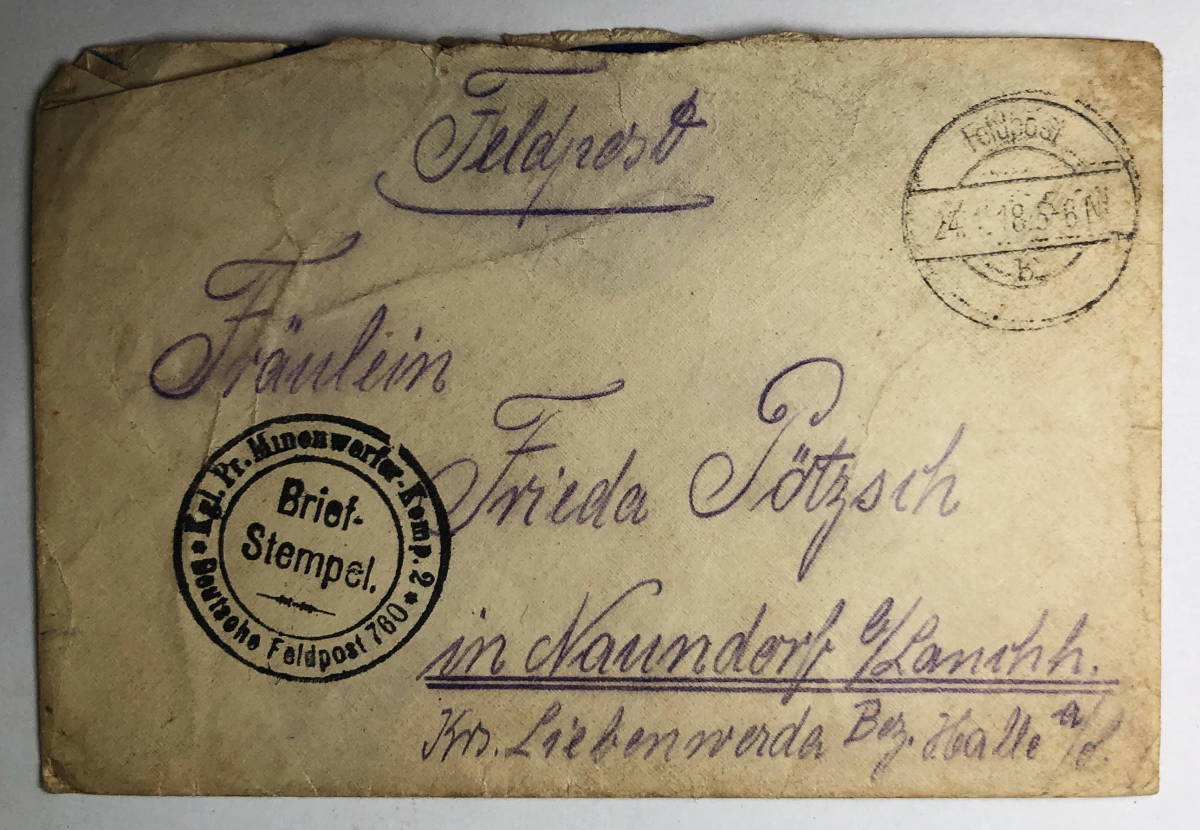 Feldpost
Feldpost
24. 18. 5-6 N
b
Fräulein
Frieda Pötzsch
Kgl. Pr. Minenwerfer-Komp. 2
Brief-
Stempel.
* Deutsche Feldpost 760 *
in Naundorf b/
Krs. Liebenwerda Bez. Halle a/S.